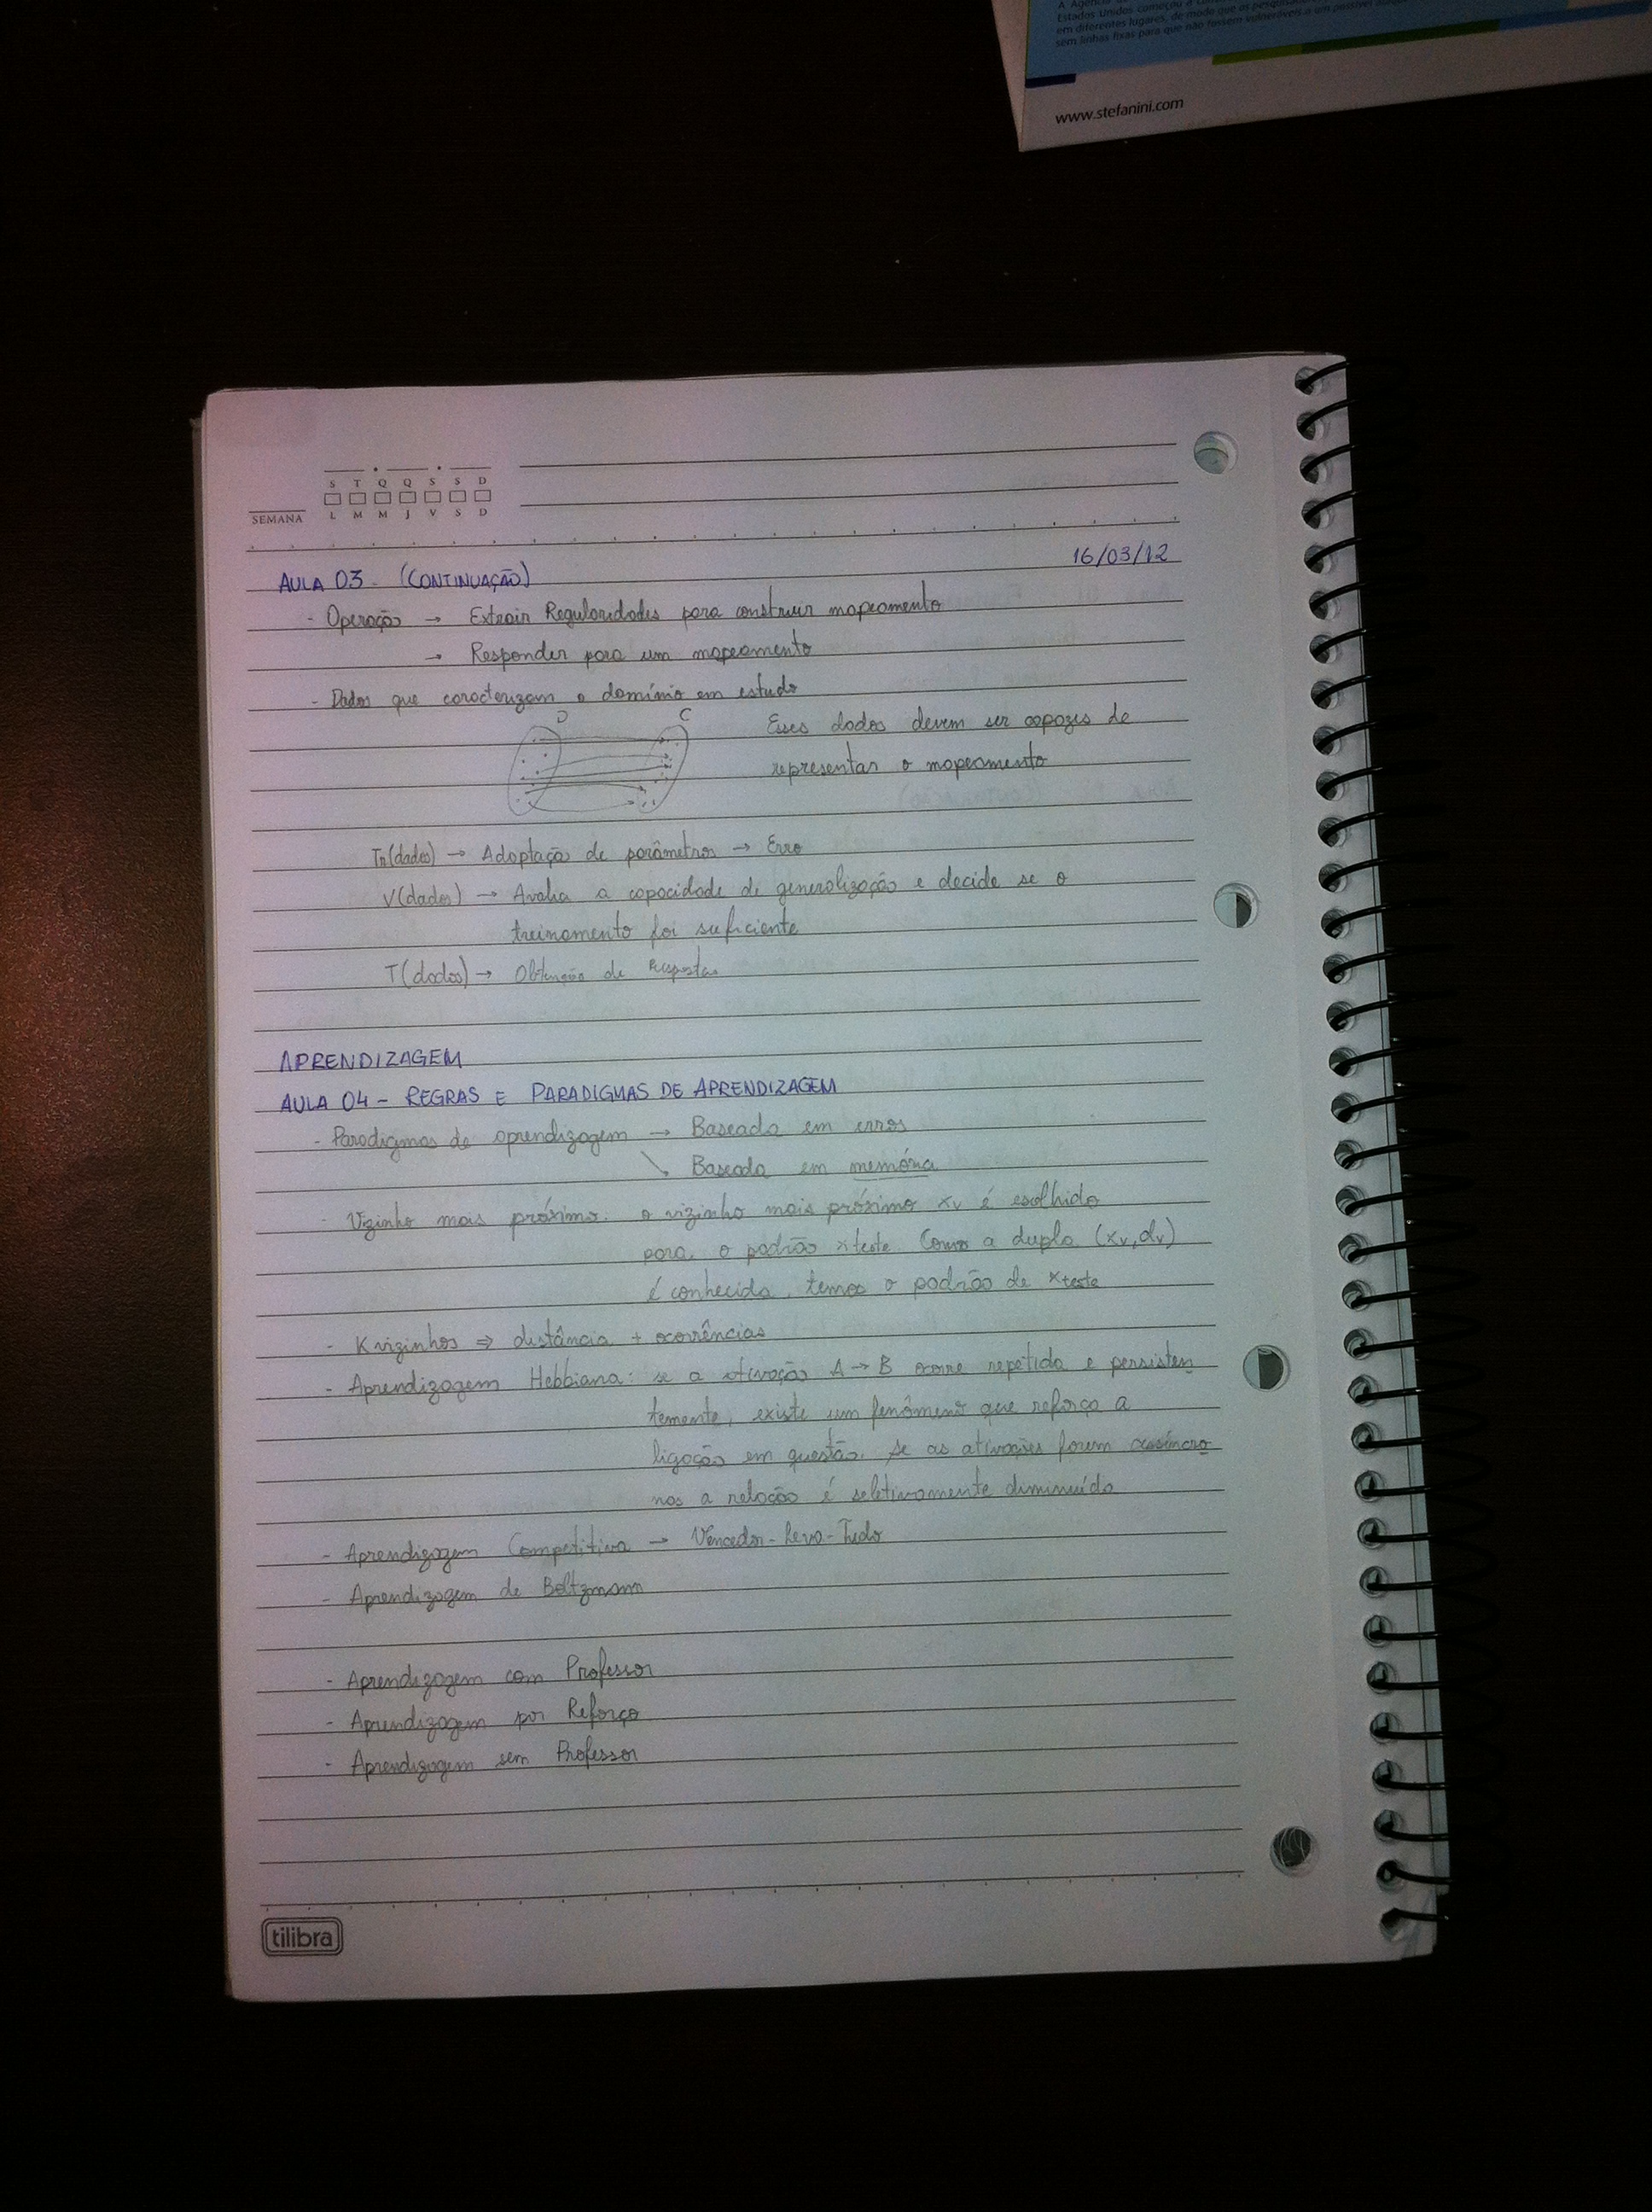 A Agência
Estados Unidos começou a
em diferentes lugares, de modo que as
sem linhas fixas para que não fossem vulneráveis a um possível
www.stefanini.com
S T Q Q S S D
SEMANA L M M J V S D
16/03/12
AULA 03 (CONTINUAÇÃO)
- Operação → Extrair Regularidades para construir mapeamento
→ Responder para um mapeamento
- Dados que caracterizam o domínio em estudo
D C
Esses dados devem ser capazes de
representar o mapeamento
Tn(dados) → Adaptação de parâmetros → Erro
V(dados) → Avalia a capacidade de generalização e decide se o
treinamento foi suficiente
T(dados) → Obtenção de Respostas
APRENDIZAGEM
AULA 04 - REGRAS E PARADIGMAS DE APRENDIZAGEM
- Paradigmas de aprendizagem → Baseada em erros
↘ Baseada em memória
- Vizinho mais próximo: o vizinho mais próximo xv é escolhido
para o padrão xteste. Como a dupla (xv, dv)
é conhecida, temos o padrão de xteste
- K vizinhos ⇒ distância + ocorrências
- Aprendizagem Hebbiana: se a ativação A → B ocorre repetida e persisten
temente, existe um fenômeno que reforça a
ligação em questão. Se as ativações forem assíncro
nas a relação é seletivamente diminuída
- Aprendizagem Competitiva → Vencedor-Leva-Tudo
- Aprendizagem de Boltzmann
- Aprendizagem com Professor
- Aprendizagem por Reforço
- Aprendizagem sem Professor
tilibra